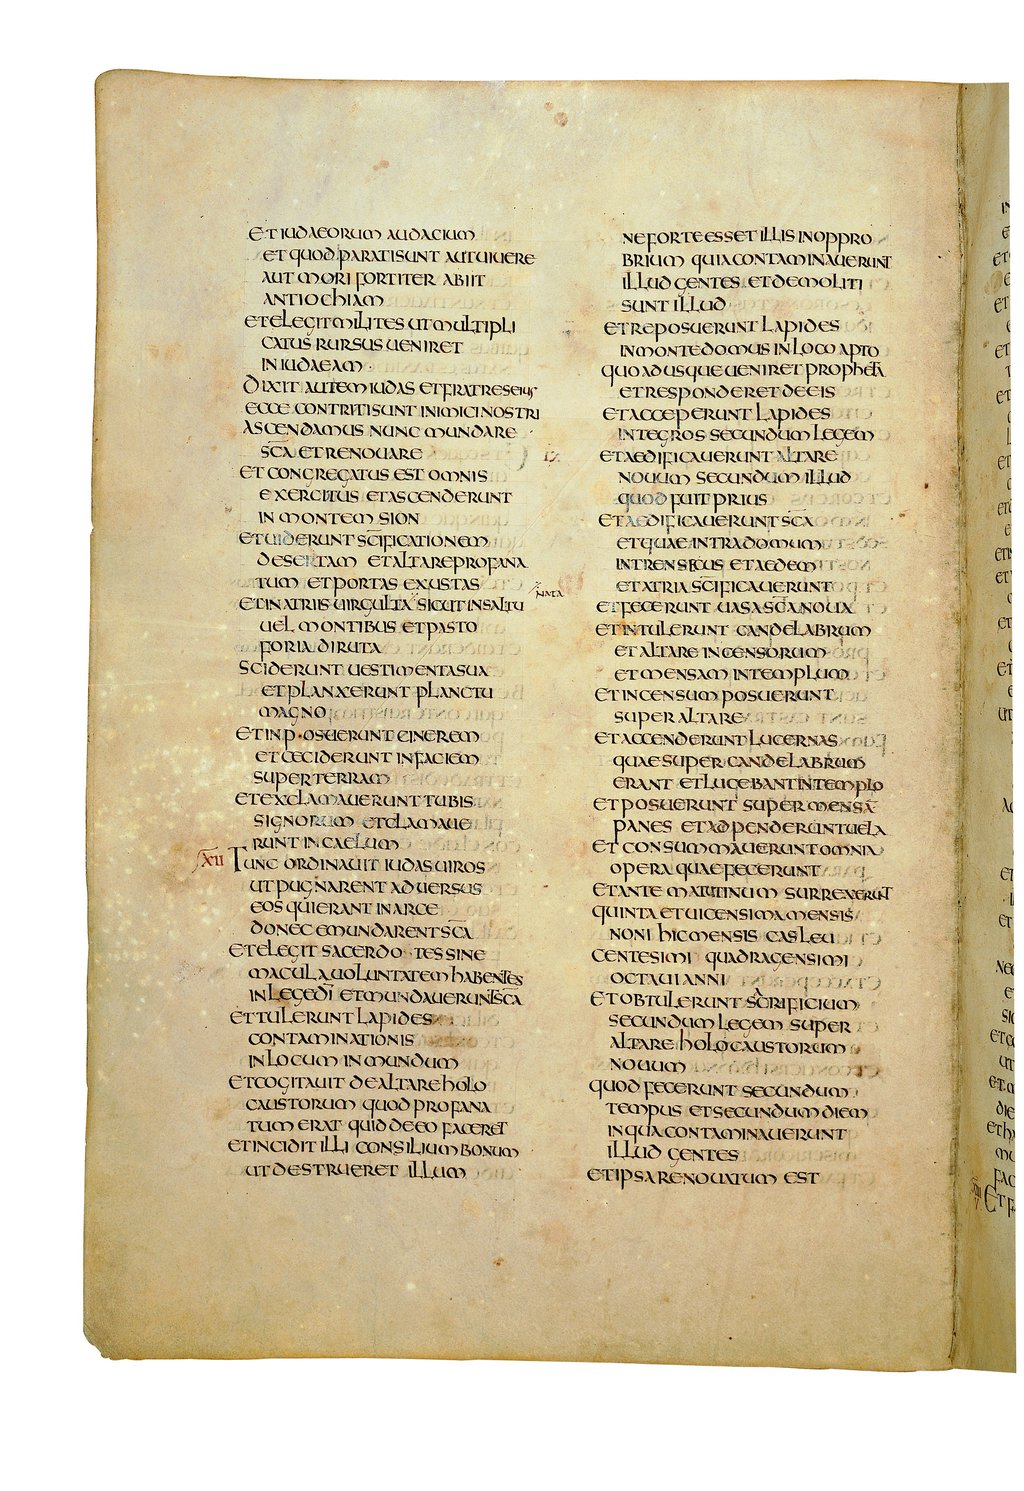 ET IUDAEORUM AUDACIUM
ET QUOD PARATI SUNT AUT UIUERE
AUT MORI FORTITER ABIIT
ANTIOCHIAM
ET ELEGIT MILITES UT MULTIPLI
CATUS RURSUS UENIRET
IN IUDAEAM
DIXIT AUTEM IUDAS ET FRATRES EIUS
ECCE CONTRITI SUNT INIMICI NOSTRI
ASCENDAMUS NUNC MUNDARE
SC̄A ET RENOUARE
ET CONGREGATUS EST OMNIS
EXERCITUS ET ASCENDERUNT
IN MONTEM SION
ET UIDERUNT SC̄IFICATIONEM
DESERTAM ET ALTARE PROFANA
TUM ET PORTAS EXUSTAS
ET IN ATRIIS UIRGULTA SICUT IN SALTU
NATA
UEL MONTIBUS ET PASTO
FORIA DIRUTA
SCIDERUNT UESTIMENTA SUA
ET PLANXERUNT PLANCTU
MAGNO
ET INP·OSUERUNT CINEREM
ET CECIDERUNT IN FACIEM
SUPER TERRAM
ET EXCLAMAUERUNT TUBIS
SIGNORUM ET CLAMAUE
RUNT IN CAELUM
XII TUNC ORDINAUIT IUDAS UIROS
UT PUGNARENT ADUERSUS
EOS QUI ERANT IN ARCE
DONEC EMUNDARENT SC̄A
ET ELEGIT SACERDO·TES SINE
MACULA UOLUNTATEM HABENTES
IN LEGE DĪ ET MUNDAUERUNT SC̄A
ET TULERUNT LAPIDES
CONTAMINATIONIS
IN LOCUM INMUNDUM
ET COGITAUIT DE ALTARE HOLO
CAUSTORUM QUOD PROFANA
TUM ERAT QUID DE EO FACERET
ET INCIDIT ILLI CONSILIUM BONUM
UT DESTRUERET ILLUM
NE FORTE ESSET ILLIS IN OPPRO
BRIUM QUIA CONTAMINAUERUNT
ILLUD GENTES ET DEMOLITI
SUNT ILLUD
ET REPOSUERUNT LAPIDES
IN MONTE DOMUS IN LOCO APTO
QUOADUSQUE UENIRET PROPHETA
ET RESPONDERET DE EIS
ET ACCEPERUNT LAPIDES
INTEGROS SECUNDUM LEGEM
ET AEDIFICAUERUNT ALTARE
NOUUM SECUNDUM ILLUD
QUOD FUIT PRIUS
ET AEDIFICAUERUNT SC̄A
ET QUAE INTRA DOMUM
INTRENSECUS ET AEDEM
ET ATRIA SC̄IFICAUERUNT
ET FECERUNT UASA SC̄A NOUA
ET INTULERUNT CANDELABRUM
ET ALTARE INCENSORUM
ET MENSAM IN TEMPLUM
ET INCENSUM POSUERUNT
SUPER ALTARE
ET ACCENDERUNT LUCERNAS
QUAE SUPER CANDELABRUM
ERANT ET LUCEBANT IN TEMPLO
ET POSUERUNT SUPER MENSĀ
PANES ET ADPENDERUNT UELA
ET CONSUMMAUERUNT OMNIA
OPERA QUAE FECERUNT
ET ANTE MATUTINUM SURREXERUNT
QUINTA ET UICENSIMA MENSIS
NONI HIC MENSIS CASLEU
CENTESIMI QUADRAGENSIMI
OCTAUI ANNI
ET OBTULERUNT SACRIFICIUM
SECUNDUM LEGEM SUPER
ALTARE HOLOCAUSTORUM
NOUUM
QUOD FECERUNT SECUNDUM
TEMPUS ET SECUNDUM DIEM
IN QUA CONTAMINAUERUNT
ILLUD GENTES
ET IPSA RENOUATUM EST